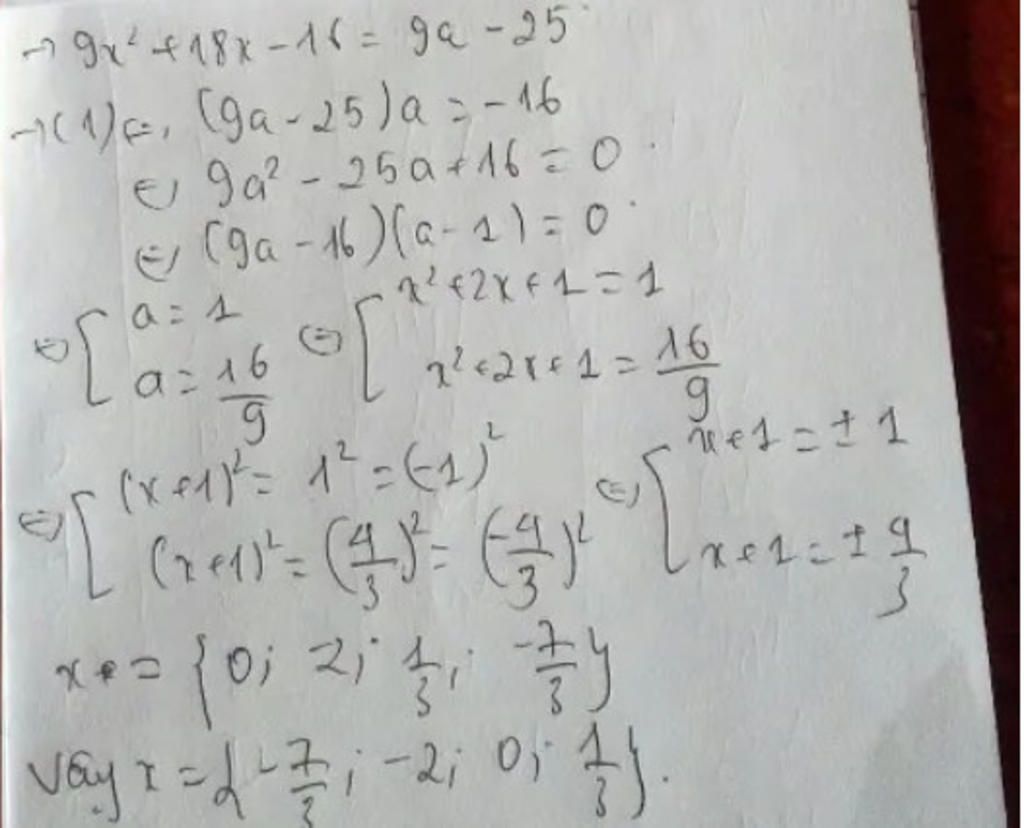 → 9x² + 18x - 16 = 9a - 25
→ (1) ⇔ (9a - 25)a = -16
⇔ 9a² - 25a + 16 = 0
⇔ (9a - 16)(a - 1) = 0
⇔ [ a = 1 ⇔ [ x² + 2x + 1 = 1
a = 16/9 x² + 2x + 1 = 16/9
⇔ [ (x+1)² = 1² = (-1)² ⇔ [ x + 1 = ± 1
(x+1)² = (4/3)² = (-4/3)² x + 1 = ± 4/3
x = {0; 2; 1/3; -7/3}
Vậy x = {-7/3; -2; 0; 1/3}.